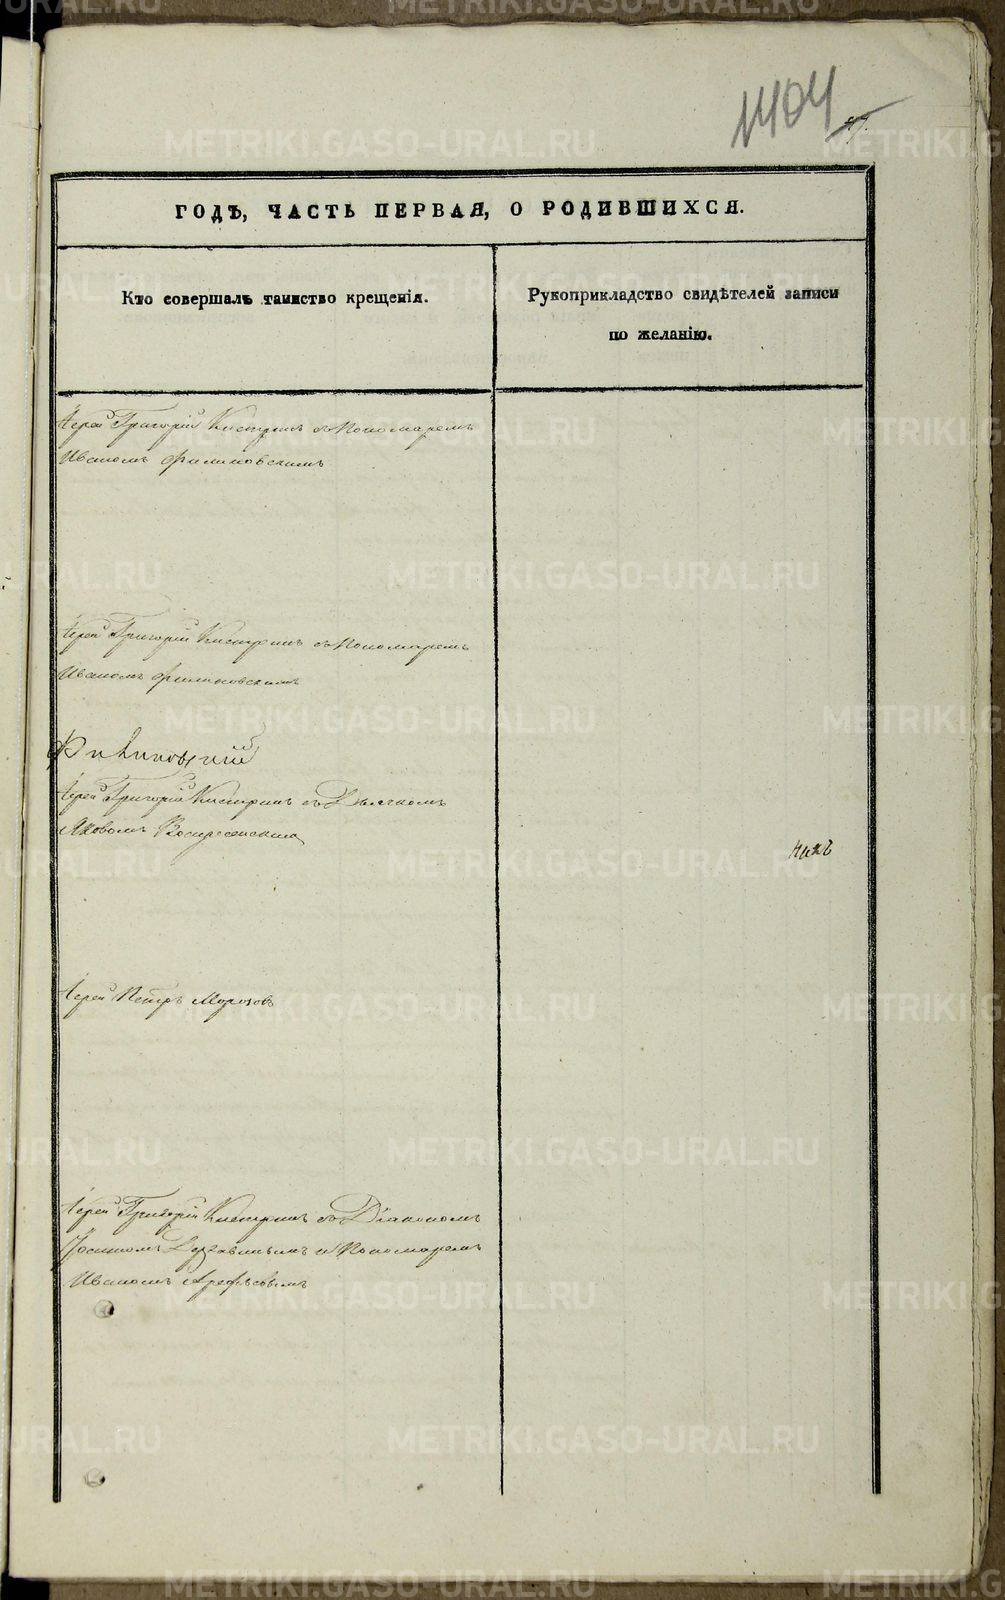 1404
ГОДЪ, ЧАСТЬ ПЕРВАЯ, О РОДИВШИХСЯ.
Кто совершалъ таинство крещенія.
Рукоприкладство свидѣтелей записи
по желанію.
Іерей Григорій Кистринъ съ Пономаремъ
Иваномъ Филиковскимъ
Іерей Григорій Кистринъ съ Пономаремъ
Иваномъ Филиковскимъ
Іерей Григорій Кистринъ съ Дьячкомъ
Яковомъ Воскресенскимъ
Іерей Петръ Морозовъ
Іерей Григорій Кистринъ съ Діакономъ
Державинымъ и Пономаремъ
Иваномъ Арефьевымъ
METRIKI.GASO-URAL.RU